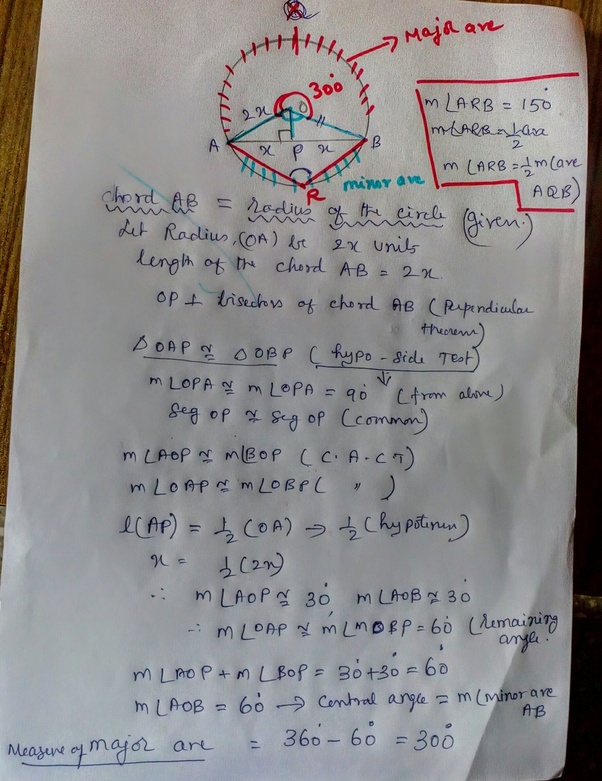 Major arc
300°
2x
O
A
x
P
x
B
R
minor arc
m∠ARB = 150°
m∠ARB = ½ arc
m∠ARB = ½ m(arc
AQB)
chord AB = radius of the circle (given.)
Let Radius, (OA) be 2x units
length of the chord AB = 2x
OP ⊥ bisectors of chord AB (Perpendicular
theorem)
△OAP ≅ △OBP (hypo-side Test)
m∠OPA ≅ m∠OPA = 90° (from above)
Seg OP ≅ Seg OP (common)
m∠AOP ≅ m∠BOP (C.A.C.T)
m∠OAP ≅ m∠OBP ( " )
l(AP) = ½ (OA) → ½ (hypotinus)
x = ½ (2x)
∴ m∠AOP ≅ 30° m∠AOB ≅ 30°
∴ m∠OAP ≅ m∠MOBP = 60° (Remaining
angle.
m∠AOP + m∠BOP = 30° + 30° = 60°
m∠AOB = 60° → Central angle = m(minor arc
AB
Measure of major arc = 360° - 60° = 300°